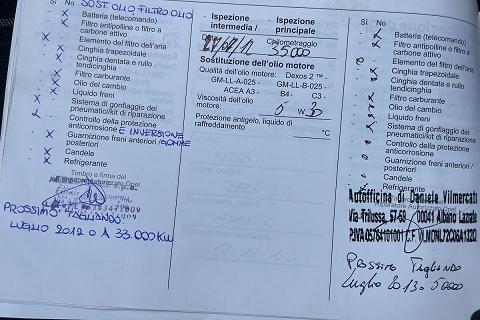 Sì No SOST. OLIO FILTRO OLIO
Batteria (telecomando)
Filtro antipolline o filtro a
carbone attivo
Elemento del filtro dell'aria
Cinghia trapezoidale
Cinghia dentata e rullo
tendicinghia
Filtro carburante
Olio del cambio
Liquido freni
Sistema di gonfiaggio dei
pneumatici/kit di riparazione
Controllo della protezione
anticorrosione E INVERSIONE
Guarnizione freni anteriori / GOMME
posteriori
Candele
Refrigerante
Timbro e firma del
PROSSIMO TAGLIANDO
LUGLIO 2012 O A 33.000 KM
Ispezione
intermedia /
Ispezione
principale
Chilometraggio
35000
Sostituzione dell'olio motore:
Qualità dell'olio motore: Dexos 2 ™ -
GM-LL-A-025 - GM-LL-B-025 -
ACEA A3 - B4 - C3 -
Viscosità dell'olio
motore: 5 W 30
Protezione antigelo, liquido di
raffreddamento °C
Sì No
Batteria (telecomando)
Filtro antipolline o filtro a
carbone attivo
Elemento del filtro dell'aria
Cinghia trapezoidale
Cinghia dentata e rullo
tendicinghia
Filtro carburante
Olio del cambio
Liquido freni
Sistema di gonfiaggio dei
pneumatici/kit di riparazione
Controllo della protezione
anticorrosione
Guarnizione freni anteriori /
posteriori
Candele
Refrigerante
Autofficina di Daniele Vilmercati
Via Trilussa, 57-59 00041 Albano Laziale
Prossimo Tagliando
Luglio 2013 o 50000